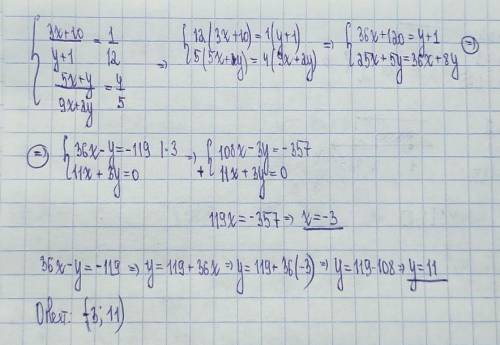 { (3x+10)/(y+1) = 1/12
(5x+y)/(9x+2y) = 4/5
⇒ { 12(3x+10) = 1(y+1)
5(5x+y) = 4(9x+2y)
⇒ { 36x+120 = y+1
25x+5y = 36x+8y ⇒
⇒ { 36x-y = -119 |·3
11x+3y = 0
⇒ + { 108x-3y = -357
11x+3y = 0
119x = -357 ⇒ x = -3
36x-y = -119 ⇒ y = 119+36x ⇒ y = 119+36(-3) ⇒ y = 119-108 ⇒ y = 11
Ответ: (-3; 11)